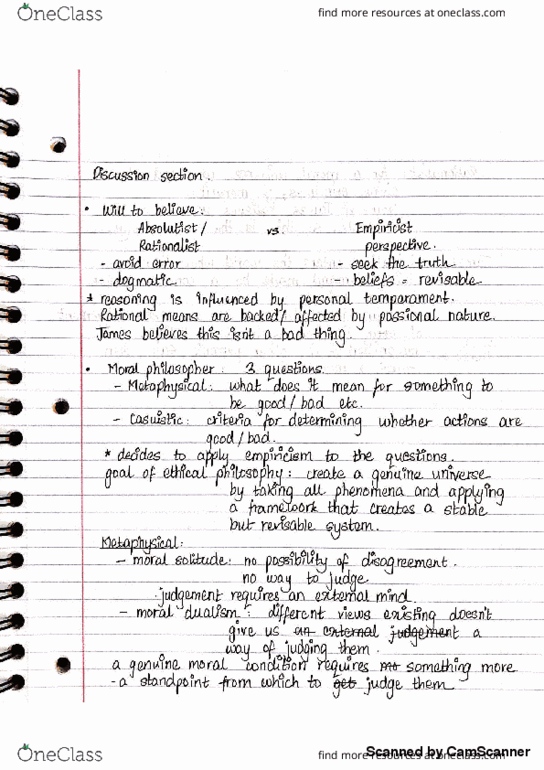 OneClass
find more resources at oneclass.com
Discussion section.
• Will to believe:
Absolutist / vs Empiricist
Rationalist perspective.
- avoid error - seek the truth
- dogmatic - beliefs = revisable
* reasoning is influenced by personal temparament.
Rational means are backed/ affected by passional nature.
James believes this isn't a bad thing.
• Moral philosopher: 3 questions.
- Metaphysical: what does it mean for something to
be good / bad etc.
- Casuistic: criteria for determining whether actions are
good / bad.
* decides to apply empiricism to the questions.
goal of ethical philosophy: create a genuine universe
by taking all phenomena and applying
a framework that creates a stable
but revisable system.
Metaphysical:
- moral solitude: no possibility of disagreement.
no way to judge
judgement requires an external mind.
- moral dualism: different views existing doesn't
give us an external judgement a
way of judging them.
a genuine moral condition requires no something more
- a standpoint from which to get judge them
OneClass
find more resources at oneclass.com
Scanned by CamScanner